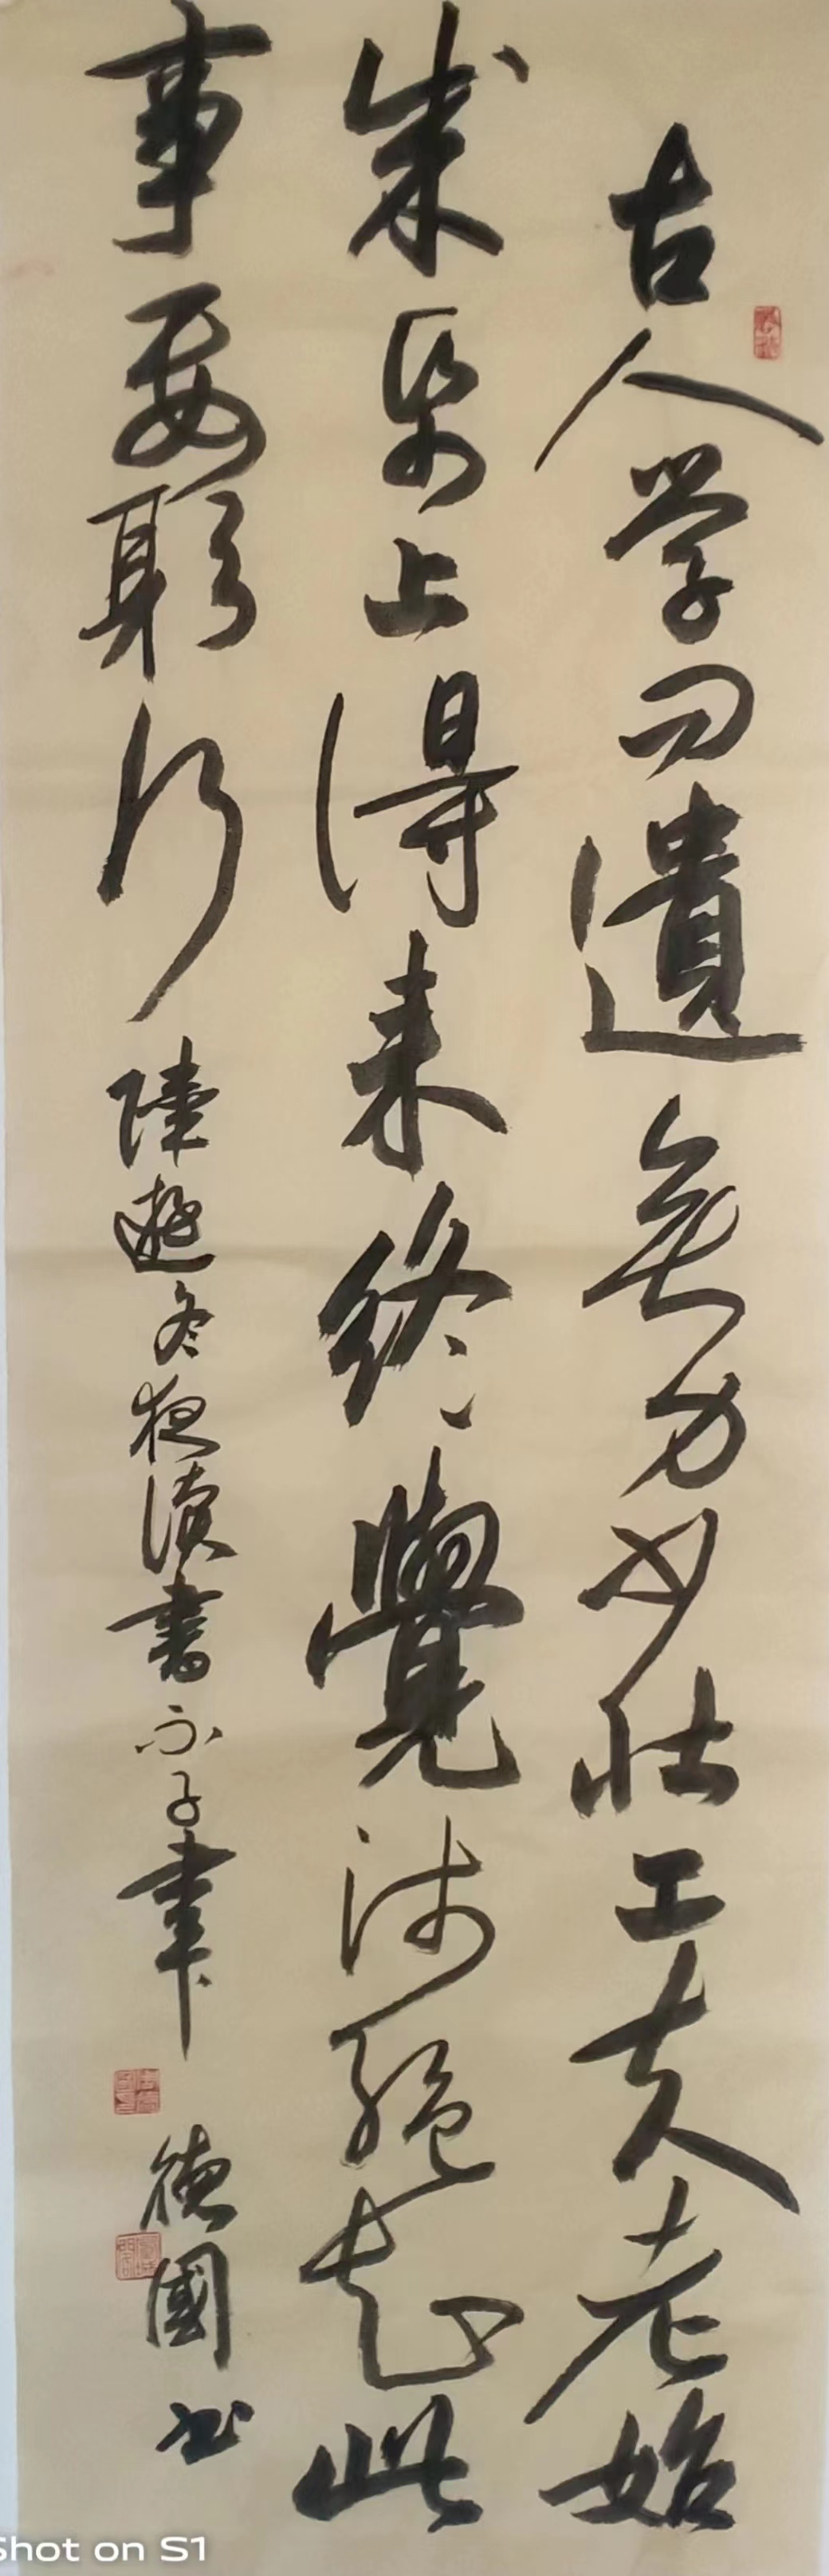 古人学问遺無力少壮工夫老始
成帋上得来终覺浅绝知此
事要躬行 陸遊冬夜读書示子聿 德國书
Shot on S1